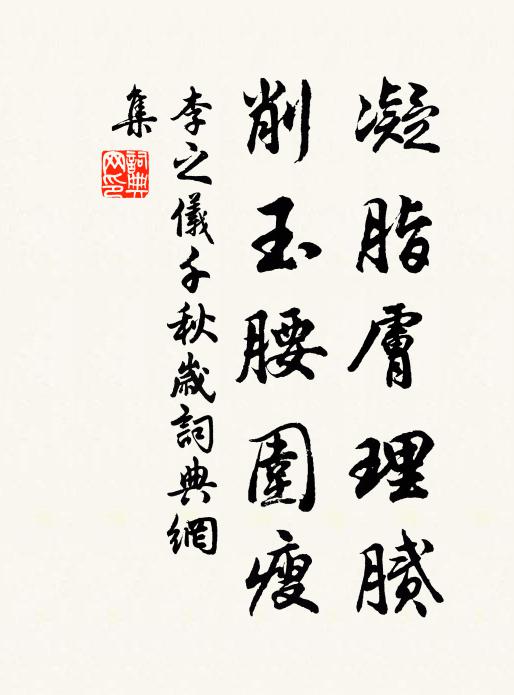 凝脂膚理膩
削玉腰圍瘦
李之儀千秋歲詞典網
集
詞典
网印